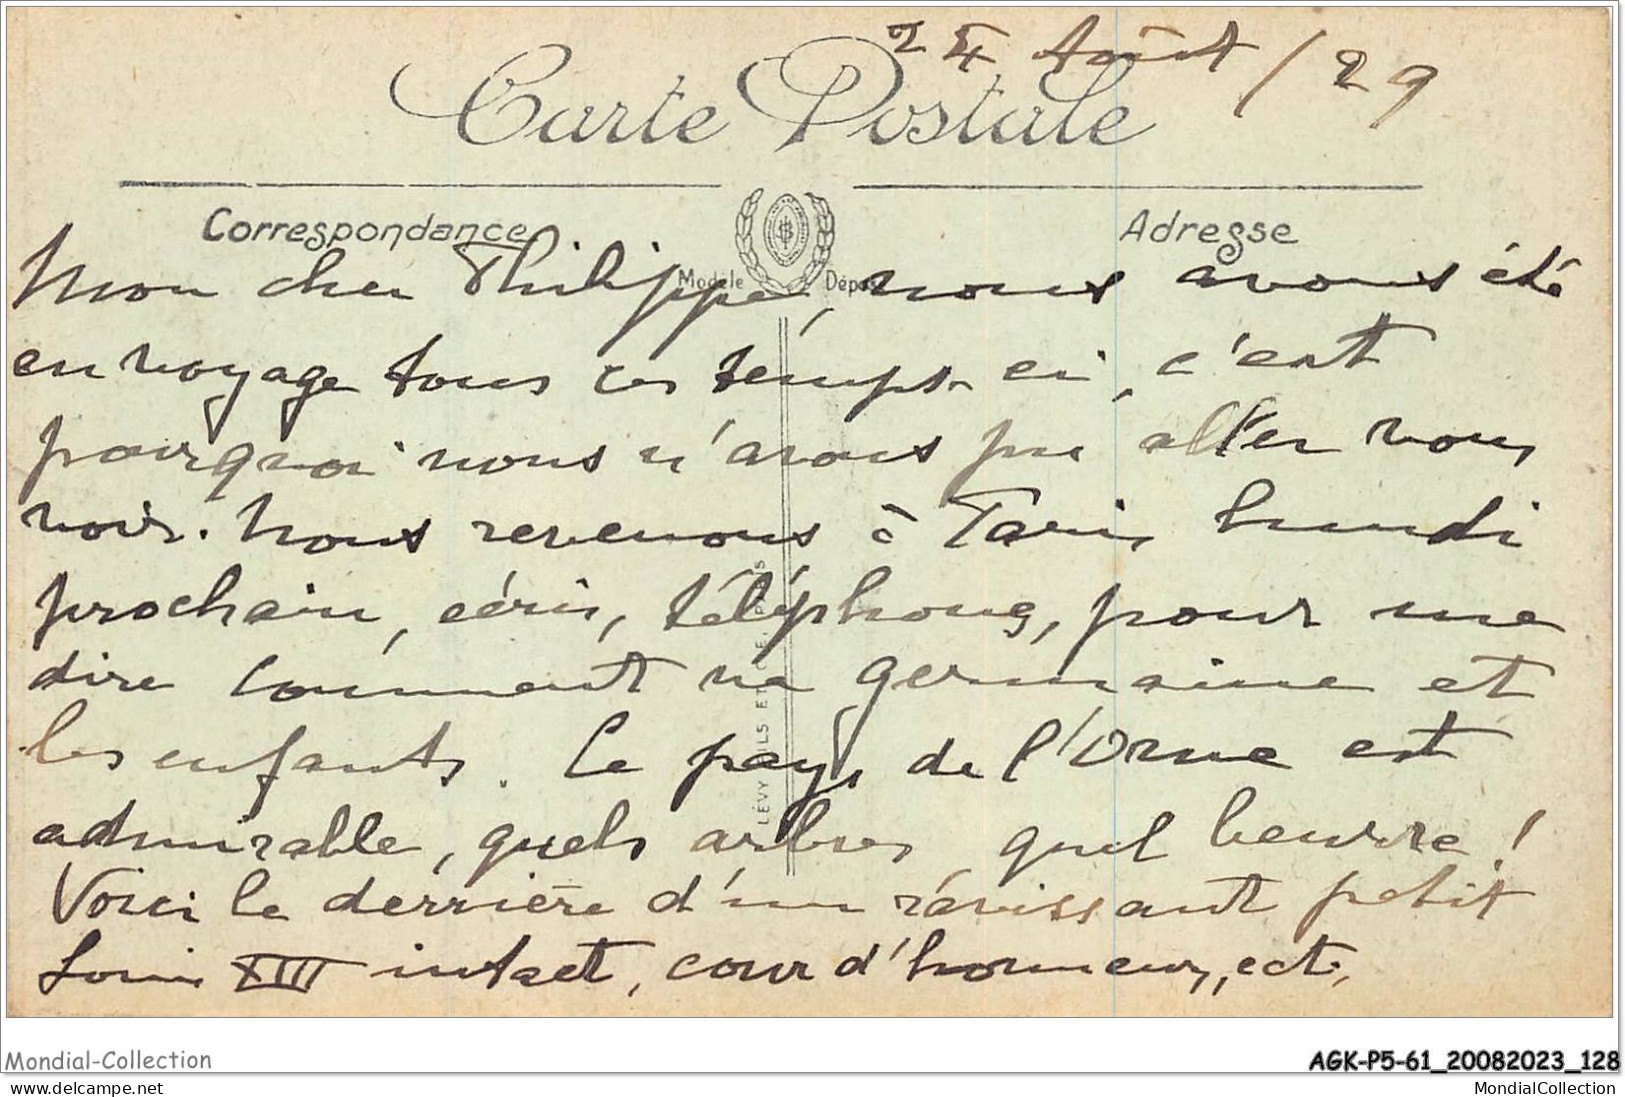 24 Août / 29
Carte Postale
Correspondance
Adresse
Modèle Déposé
Mon cher Philippe, nous avons été
en voyage tous ces temps-ci, c'est
pourquoi nous n'avons pu aller vous
voir. Nous revenons à Paris lundi
prochain, écris, téléphone, pour me
dire comment va Germaine et
les enfants. Le pays de l'Orne est
admirable, quels arbres quel beurre !
Voici le derrière d'un ravissant petit
Louis XIII intact, cour d'honneur, ect,
LÉVY FILS ET CIE.
Mondial-Collection
AGK-P5-61_20082023_128
www.delcampe.net
MondialCollection